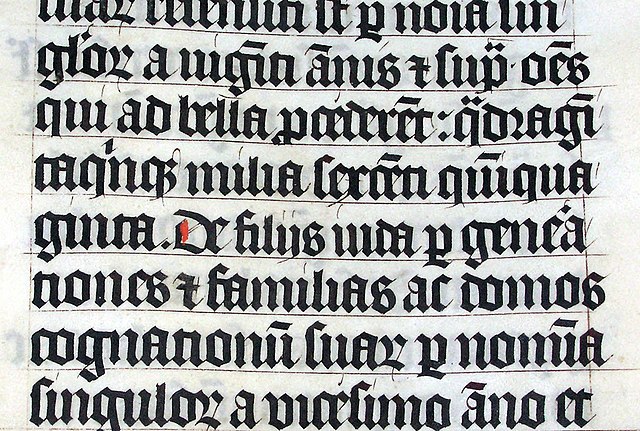 suaꝝ recensiti sūt ꝑ noīa sin
gloꝝ a uigīti ānis ⁊ sup̄ · oēs
qui ad bella ꝓcederēt : q̄dragī
taqinqꝫ milia sexcēti quīqua
ginta . De filijs iuda ꝑ genera
tiones ⁊ familias ac domos
cognationū suaꝝ ꝑ nomīa
singuloꝝ a vicesimo āno et